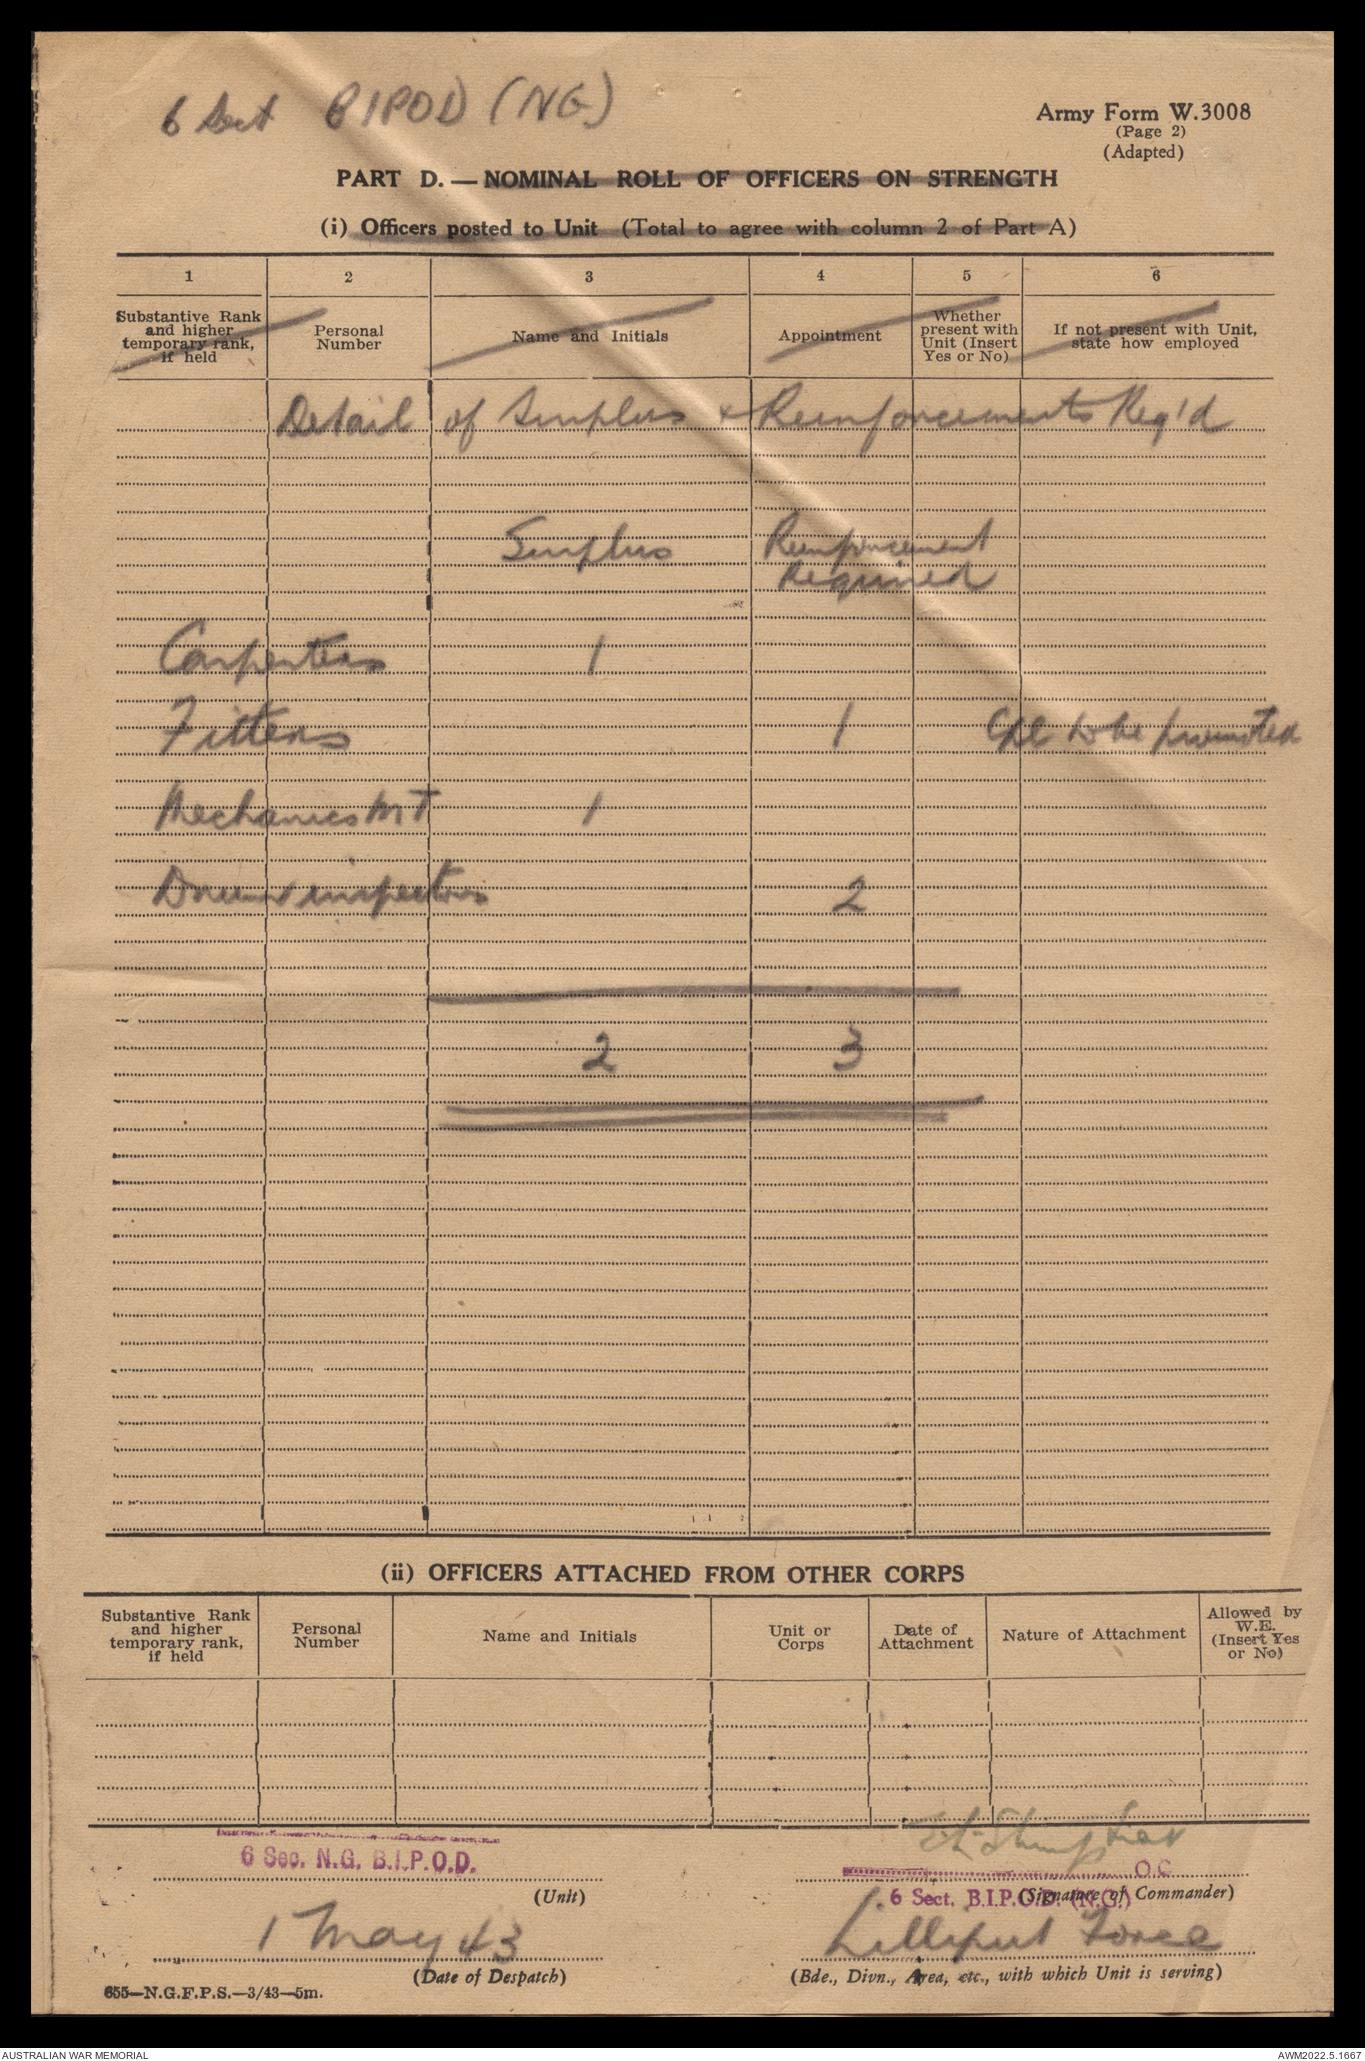 6 Sect BIPOD (NG)
Army Form W.3008
(Page 2)
(Adapted)
PART D.—NOMINAL ROLL OF OFFICERS ON STRENGTH
(i) Officers posted to Unit (Total to agree with column 2 of Part A)
1 2 3 4 5 6
Substantive Rank and higher temporary rank, if held
Personal Number
Name and Initials
Appointment
Whether present with Unit (Insert Yes or No)
If not present with Unit, state how employed
Detail of Surplus & Reinforcements Req'd
Surplus Reinforcement Required
Carpenters 1
Fitters 1 Cpl to be promoted
Mechanics MT 1
inspectors 2
2 3
(ii) OFFICERS ATTACHED FROM OTHER CORPS
Substantive Rank and higher temporary rank, if held
Personal Number
Name and Initials
Unit or Corps
Date of Attachment
Nature of Attachment
Allowed by W.E. (Insert Yes or No)
6 Sec. N.G. B.I.P.O.D.
(Unit)
O.C
6 Sect. B.I.P.O.D. (N.G.)
(Signature of Commander)
1 May 43
(Date of Despatch)
Lilliput Force
(Bde., Divn., Area, etc., with which Unit is serving)
655—N.G.F.P.S.—3/43—5m.
AUSTRALIAN WAR MEMORIAL
AWM2022.5.1667